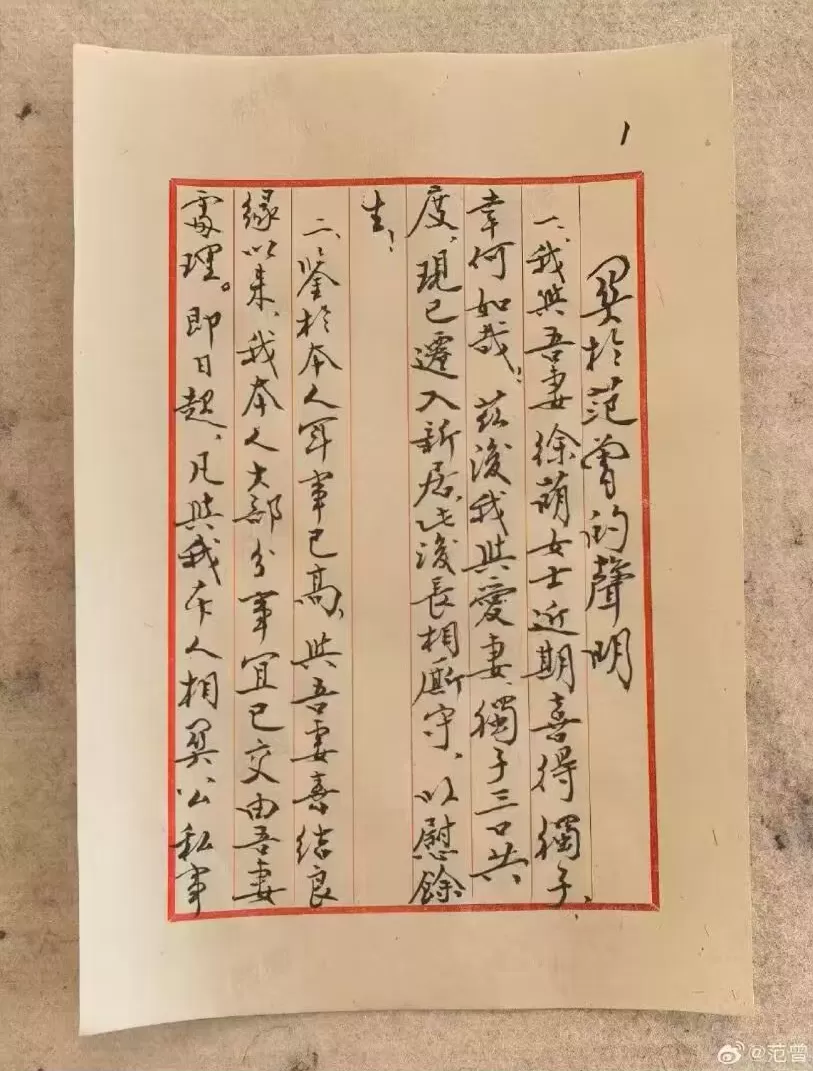 1
關於范曾的聲明
一、我與吾妻徐萌女士近期喜得獨子、
幸何如哉、茲後我與愛妻、獨子三口共
度、現已遷入新居、此後長相廝守、以慰餘
生、
二、鑒於本人年事已高、與吾妻喜結良
緣以來、我本人大部分事宜已交由吾妻
處理。即日起、凡與我本人相關公私事
@范曾